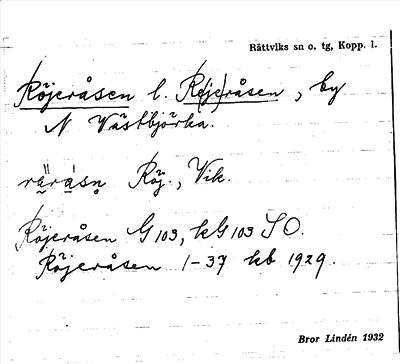 Rättviks sn o. tg, Kopp. l.
Röjeråsen l. Re(je)råsen, by
N Västbjörka.
räråsn Röj., Vik.
Röjeråsen G 103, kG 103 SO.
Röjeråsen 1-37 kb 1929.
Bror Lindén 1932